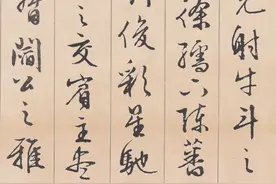 光射牛斗之
徐孺下陳蕃
列俊彩星馳
之交賓主盡
督閻公之雅